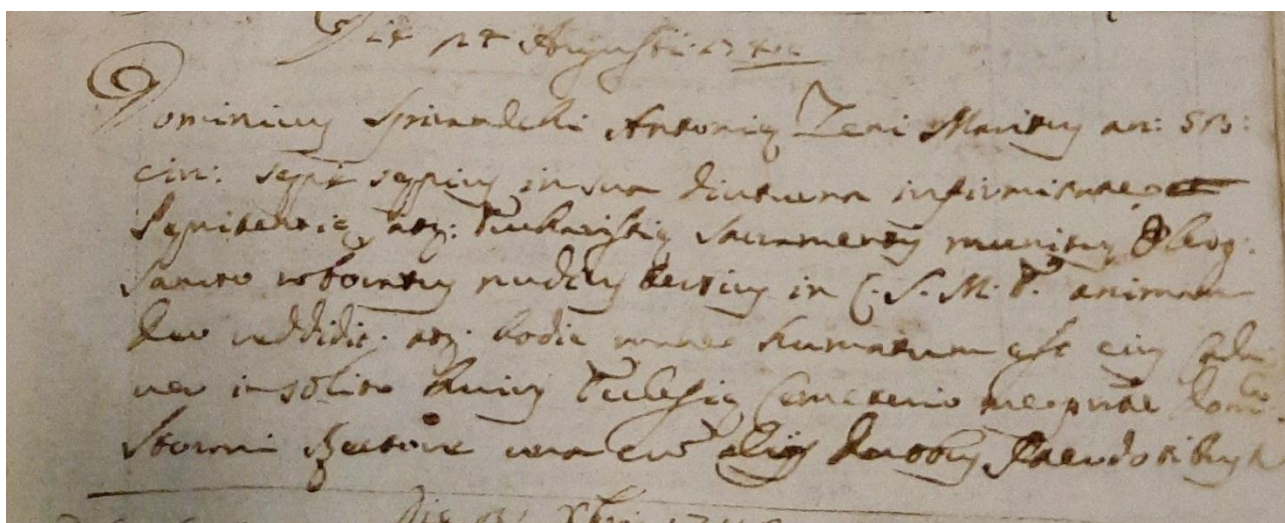 Die Augusti
Dominicus Antoniæ Zeni Maritus an: 58:
cir: sepe sepius in sua diuturna infirmitate
Pęnitentię atq: Eukaristię Sacramentis munitus Oleoq:
sancto roboratus nudius tertius in C. S. M. E. animam
Deo reddidit. atq. hodie mane humatum est eius cada
ver in solito huius Ecclesię Cemeterio me pnte Domi:
Rectore una cum aliis duobus Sacerdotibus